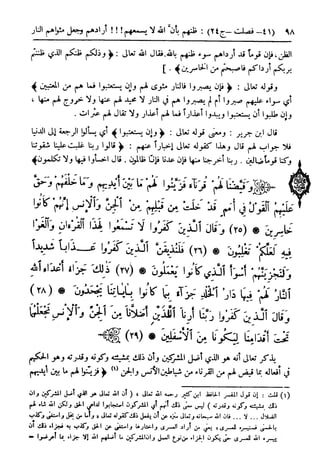 ٩٨ (٤١ - فصلت - ج٢٤) : ظنهم بأن الله لا يسمعهم!!! أرادهم وجعل مثواهم النار
الظن، فإن قوماً قد أرداهم سوء ظنهم بالله. فقال الله تعالى : ﴿وذلكم ظنكم الذي ظننتم
بربكم أرداكم فأصبحتم من الخاسرين﴾ . ]
وقوله تعالى : ﴿فإن يصبروا فالنار مثوى لهم وإن يستعتبوا فما هم من المعتبين﴾
أي سواء عليهم صبروا أم لم يصبروا هم في النار لا محيد لهم عنها ولا خروج لهم منها ،
وإن طلبوا أن يستعتبوا ويبدوا أعذاراً فما لهم أعذار ولا تقال لهم عثرات .
قال ابن جرير : ومعنى قوله تعالى : ﴿وإن يستعتبوا﴾ أي يسألوا الرجعة إلى الدنيا
فلا جواب لهم قال وهذا كقوله تعالى إخباراً عنهم : ﴿قالوا ربنا غلبت علينا شقوتنا
وكنا قوماً ضالين . ربنا أخرجنا منها فإن عدنا فإنا ظالمون . قال اخسأوا فيها ولا تكلمون﴾
وَقَيَّضْنَا لَهُمْ قُرَنَآءَ فَزَيَّنُوا۟ لَهُم مَّا بَيْنَ أَيْدِيهِمْ وَمَا خَلْفَهُمْ وَحَقَّ
عَلَيْهِمُ ٱلْقَوْلُ فِىٓ أُمَمٍ قَدْ خَلَتْ مِن قَبْلِهِم مِّنَ ٱلْجِنِّ وَٱلْإِنسِ إِنَّهُمْ كَانُوا۟
خَٰسِرِينَ * (٢٥) وَقَالَ ٱلَّذِينَ كَفَرُوا۟ لَا تَسْمَعُوا۟ لِهَٰذَا ٱلْقُرْءَانِ وَٱلْغَوْا۟
فِيهِ لَعَلَّكُمْ تَغْلِبُونَ * (٢٦) فَلَنُذِيقَنَّ ٱلَّذِينَ كَفَرُوا۟ عَذَابًا شَدِيدًا
وَلَنَجْزِيَنَّهُمْ أَسْوَأَ ٱلَّذِى كَانُوا۟ يَعْمَلُونَ * (٢٧) ذَٰلِكَ جَزَآءُ أَعْدَآءِ ٱللَّهِ
ٱلنَّارُ لَهُمْ فِيهَا دَارُ ٱلْخُلْدِ جَزَآءًۢ بِمَا كَانُوا۟ بِـَٔايَٰتِنَا يَجْحَدُونَ * (٢٨)
وَقَالَ ٱلَّذِينَ كَفَرُوا۟ رَبَّنَآ أَرِنَا ٱلَّذَيْنِ أَضَلَّانَا مِنَ ٱلْجِنِّ وَٱلْإِنسِ نَجْعَلْهُمَا
تَحْتَ أَقْدَامِنَا لِيَكُونَا مِنَ ٱلْأَسْفَلِينَ * (٢٩)
يذكر تعالى أنه هو الذي أضل المشركين وأن ذلك بمشيئته وكونه وقدرته وهو الحكيم
في أفعاله بما قيض لهم من القرناء من شياطين الأنس والجن (١) ﴿فزينوا لهم ما بين أيديهم
(١) قلت : إن قول المفسر الحافظ ابن كثير رحمه الله تعالى ، ( أن الله تعالى هو الذي أضل المشركين وأن
ذلك بمشيئته وكونه وقدرته ) ليس معنى ذلك أنهم